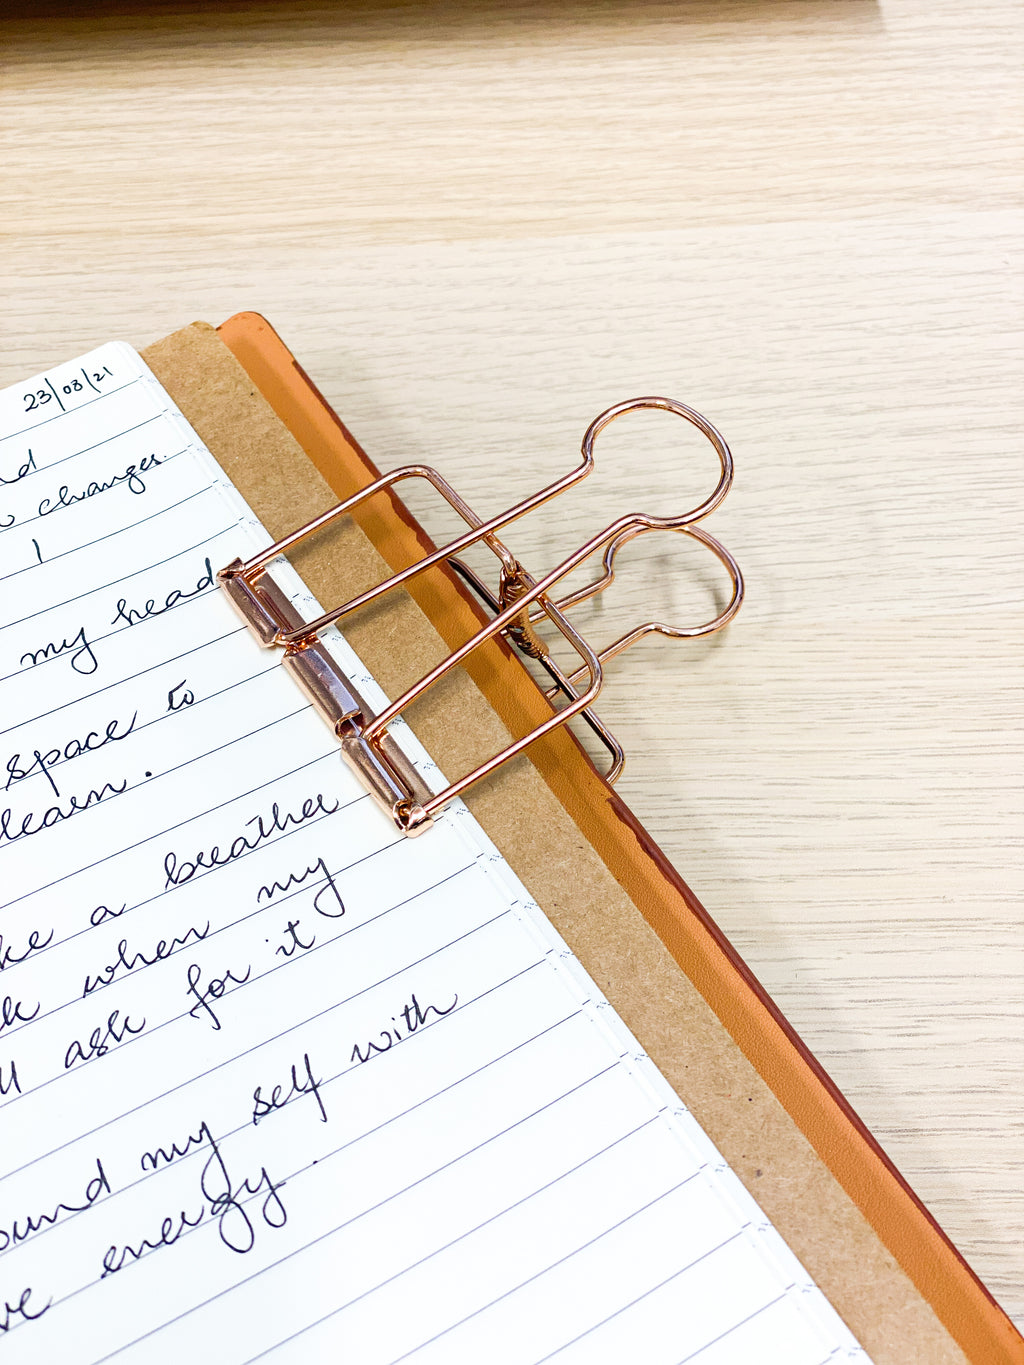 23/08/21
nd
changes.
I
my head
space to
learn.
ke a breather
k when my
ll ask for it
ound my self with
ve energy.